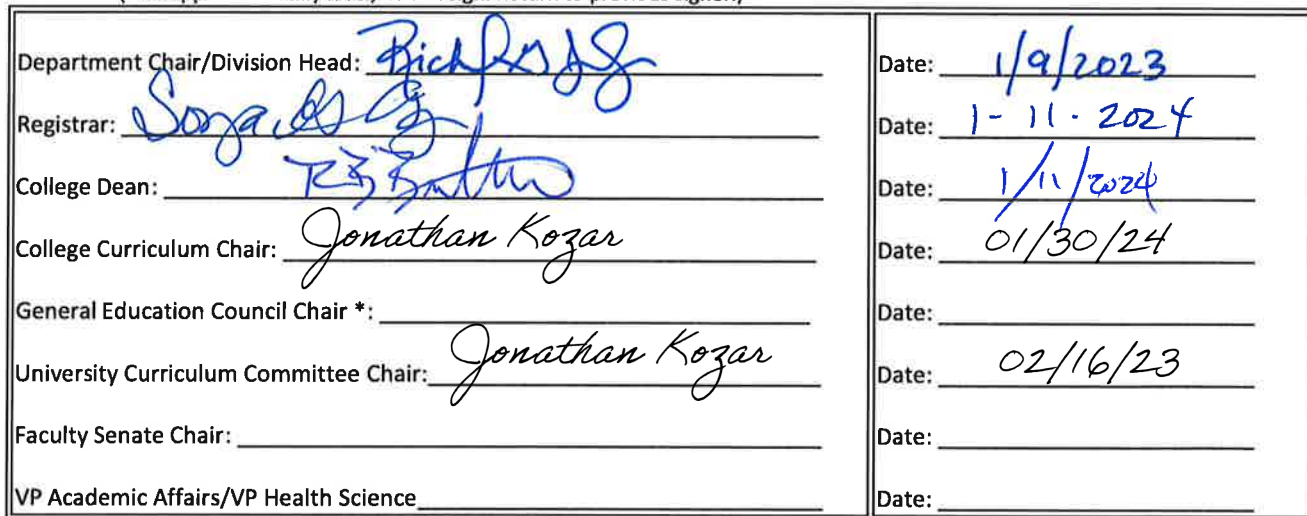 Department Chair/Division Head: Date: 1/9/2023
Registrar: Sonya Date: 1-11-2024
College Dean: Date: 1/11/2024
College Curriculum Chair: Jonathan Kozar Date: 01/30/24
General Education Council Chair *: Date:
University Curriculum Committee Chair: Jonathan Kozar Date: 02/16/23
Faculty Senate Chair: Date:
VP Academic Affairs/VP Health Science Date: